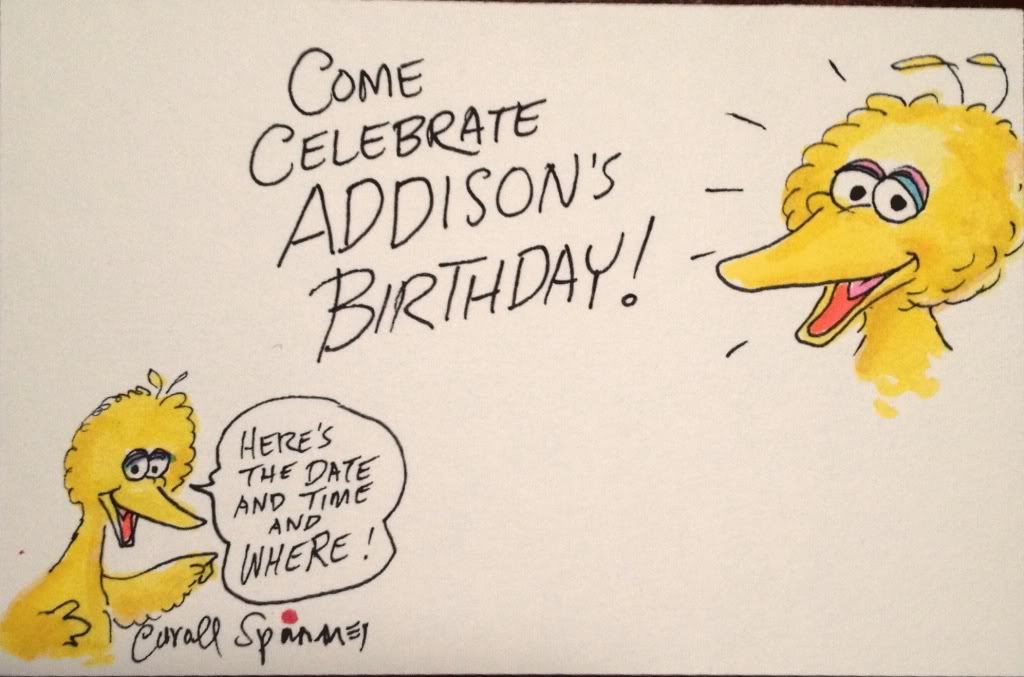 COME
CELEBRATE
ADDISON'S
BIRTHDAY!
HERE'S
THE DATE
AND TIME
AND
WHERE!
Caroll Spinney